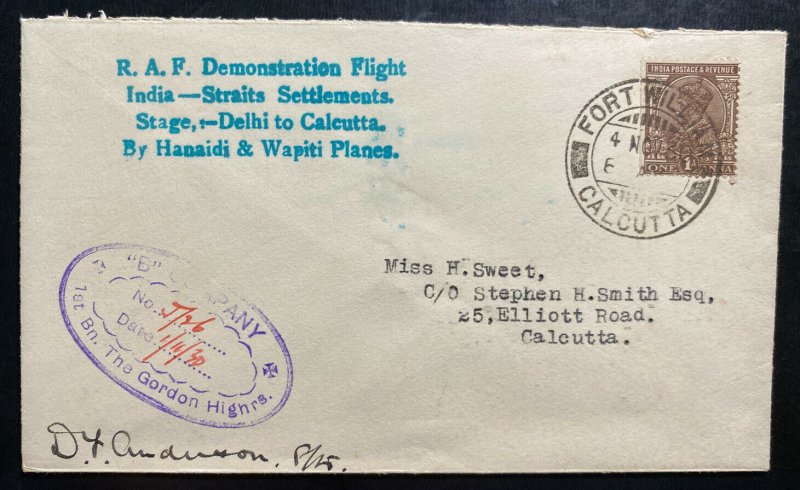 R. A. F. Demonstration Flight
India—Straits Settlements.
Stage,:—Delhi to Calcutta.
By Hanaidi & Wapiti Planes.
INDIA POSTAGE & REVENUE
ONE 1
FORT WILLIAM
4 NO
6
CALCUTTA
Miss H.Sweet,
C/O Stephen H.Smith Esq,
25,Elliott Road.
Calcutta.
"B" COMPANY
No. J/26
Date. 1/11/30
1st Bn. The Gordon Highrs.
D.F. Anderson.